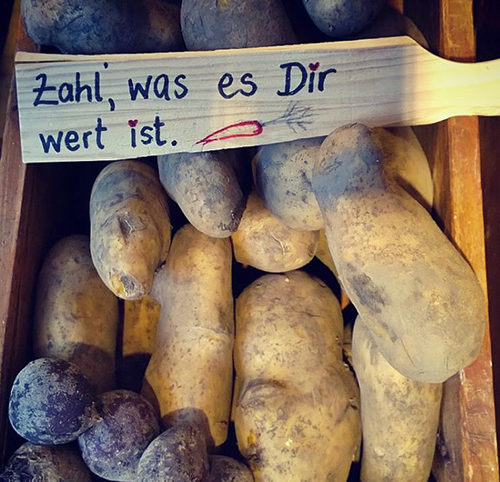 Zahl', was es Dir
wert ist.